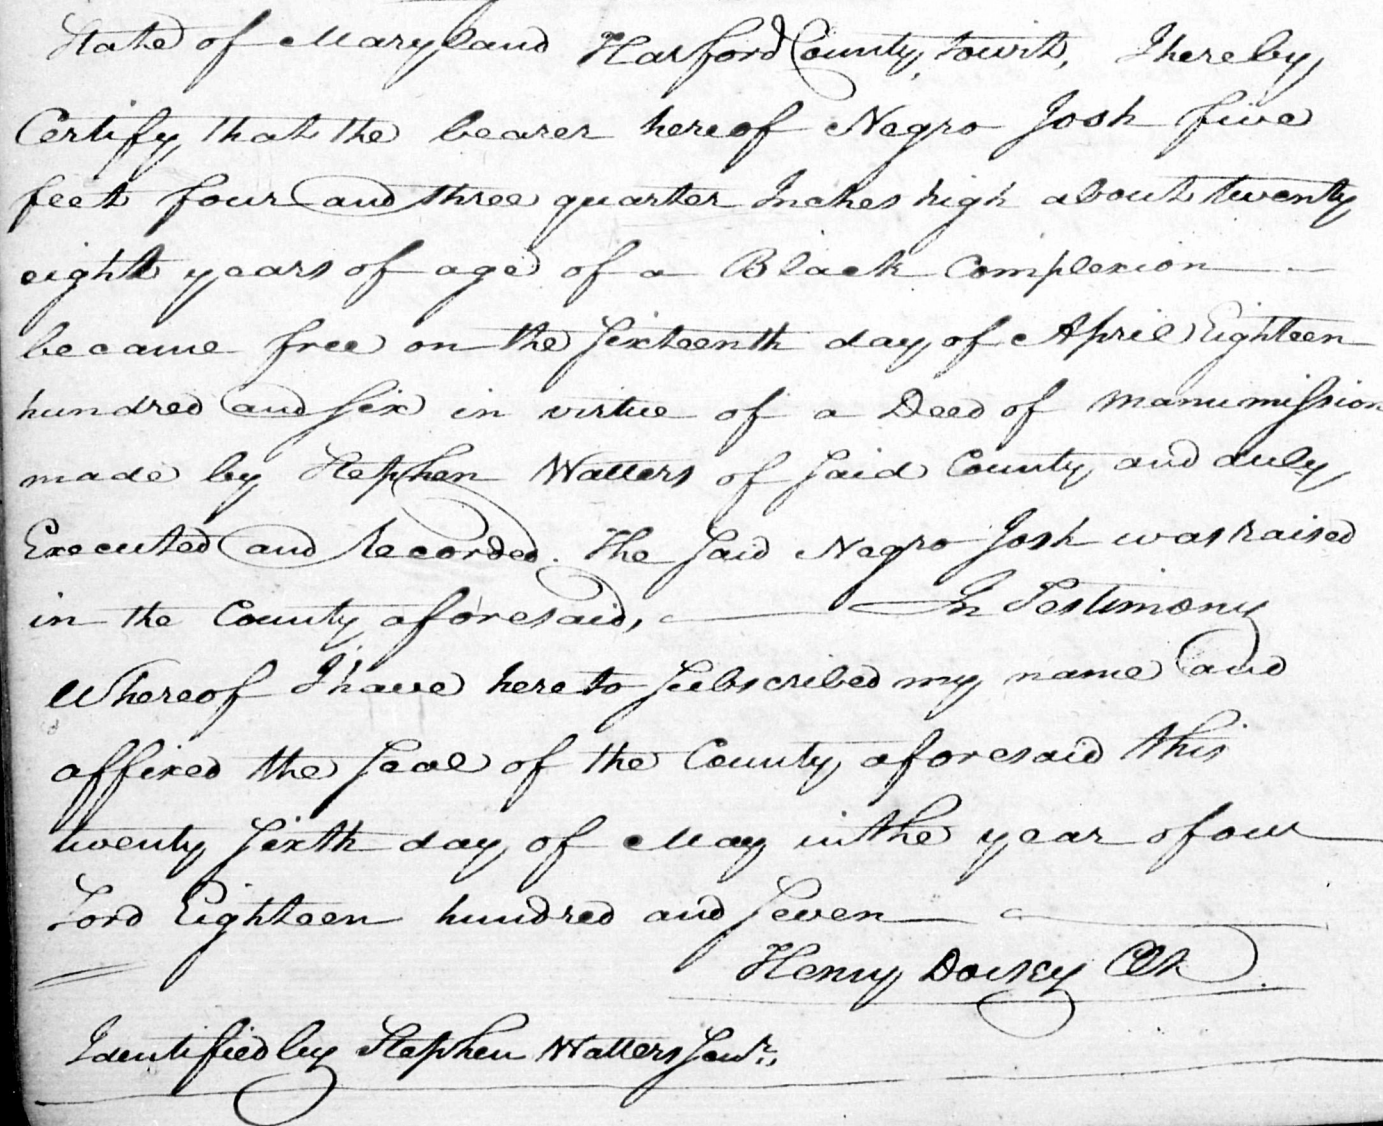 State of Maryland Harford County, towit, I hereby
Certify that the bearer hereof Negro Josh five
feet four and three quarter Inches high about twenty
eight years of age of a Black Complexion
became free on the Sixteenth day of April Eighteen
hundred and Six in virtue of a Deed of manumission
made by Stephen Watters of Said County and duly
Executed and Recorded. The Said Negro Josh was raised
in the County aforesaid, In Testimony
Whereof I have hereto Subscribed my name and
affixed the Seal of the County aforesaid this
twenty Sixth day of May in the year of our
Lord Eighteen hundred and Seven
Henry Dorsey Clk
Identified by Stephen Watters Senr.